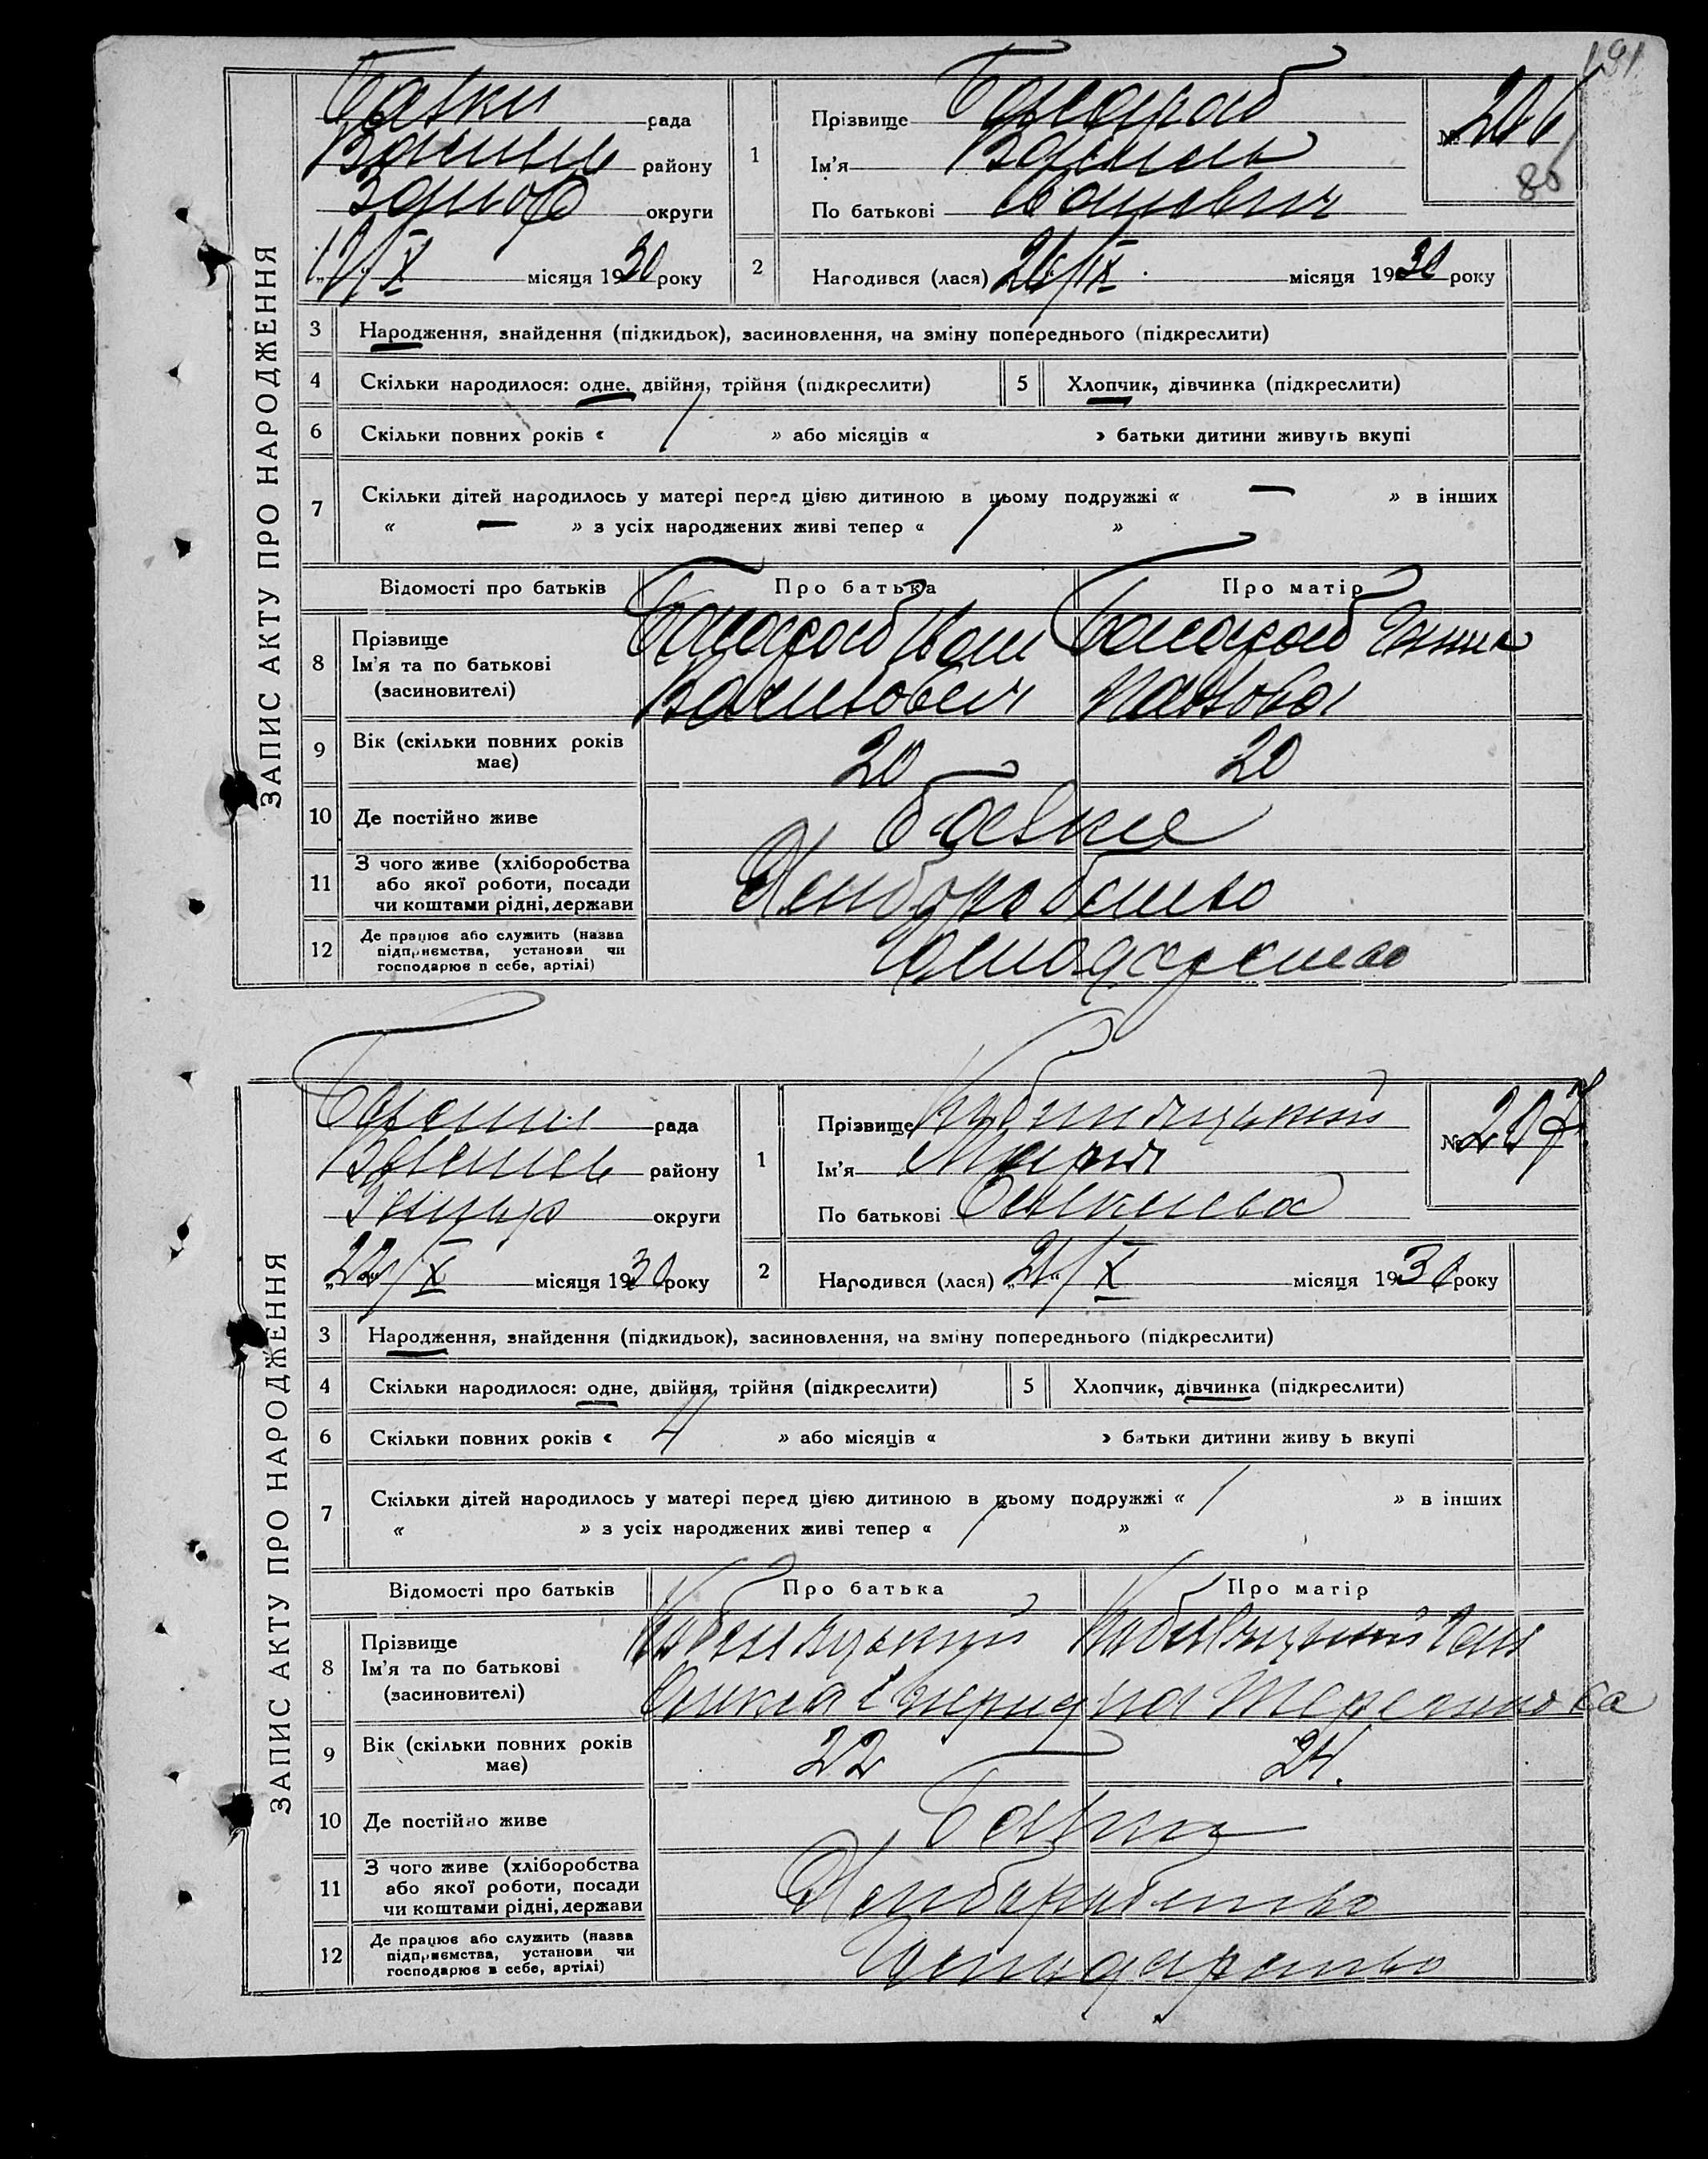 191
ЗАПИС АКТУ ПРО НАРОДЖЕННЯ
Балки рада
Василів району
Запоріз округи
/X місяця 1930 року
1
Прізвище
Ім'я Василь
По батькові Іванович
№ 206
86
2
Народився (лася) 26/IX місяця 1930 року
3 Народження, знайдення (підкидьок), засиновлення, на зміну попереднього (підкреслити)
4 Скільки народилося: одне, двійня, трійня (підкреслити)
5 Хлопчик, дівчинка (підкреслити)
6 Скільки повних років « 1 » або місяців « » батьки дитини живуть вкупі
7 Скільки дітей народилось у матері перед цією дитиною в цьому подружжі « — » в інших
« — » з усіх народжених живі тепер « 1 »
Відомості про батьків Про батька Про матір
8 Прізвище
Ім'я та по батькові
(засиновителі)
Іван
Василович
9 Вік (скільки повних років має) 20 20
10 Де постійно живе Балки
11 З чого живе (хліборобства
або якої роботи, посади
чи коштами рідні, держави
Хліборобство
12 Де працює або служить (назва
підприємства, установи чи
господарює в себе, артілі)
Господарство
ЗАПИС АКТУ ПРО НАРОДЖЕННЯ
рада
Василів району
округи
„22"/X місяця 1930 року
1
Прізвище
Ім'я Марія
По батькові
№ 207
2
Народився (лася) „21"/X місяця 1930 року
3 Народження, знайдення (підкидьок), засиновлення, на зміну попереднього (підкреслити)
4 Скільки народилося: одне, двійня, трійня (підкреслити)
5 Хлопчик, дівчинка (підкреслити)
6 Скільки повних років « 4 » або місяців « » батьки дитини живу ь вкупі
7 Скільки дітей народилось у матері перед цією дитиною в цьому подружжі « 1 » в інших
« » з усіх народжених живі тепер « 1 »
Відомості про батьків Про батька Про матір
8 Прізвище
Ім'я та по батькові
(засиновителі)
9 Вік (скільки повних років має) 22 24.
10 Де постійно живе Балки
11 З чого живе (хліборобства
або якої роботи, посади
чи коштами рідні, держави
Хліборобство
12 Де працює або служить (назва
підприємства, установи чи
господарює в себе, артілі)
Господарство